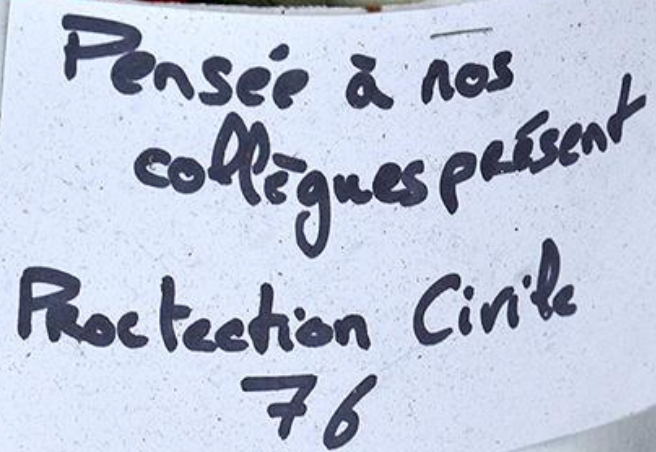 Pensée à nos
collègues présent
Proctection Civile
76